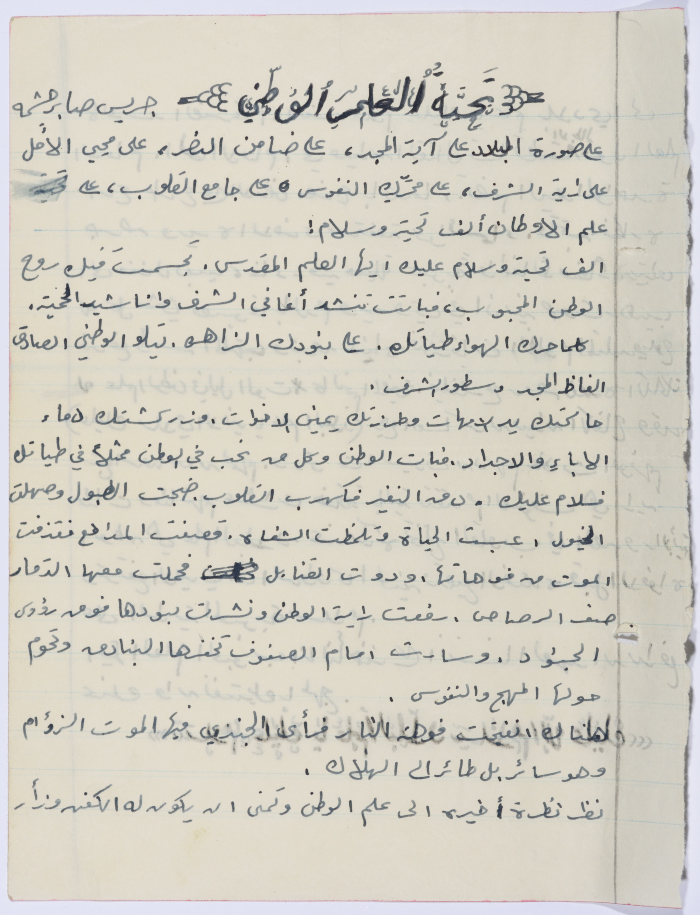 تحية العلم الوطني
جريس صابر حشمه
على صورة البلاد على آية المجد، على ضامن النصر، على محيي الأمل
على راية الشرف، على محرّك النفوس، على جامع القلوب، على
علم الاوطان ألف تحية وسلام!
الف تحية وسلام عليك ايها العلم المقدس. تجسمت فيك روح
الوطن المحبوب، فباتت تنشد أغاني الشرف واناشيد المحبة.
كلما حرك الهواء طياتك. على بنودك الزاهره. يتلو الوطني الصادق
الفاظ المجد وسطور الشرف.
حاكتك يد الامهات وطرزتك يمين الاخوات. وزركشتك دماء
الاباء والاجداد. فبات الوطن وكل من نحب في الوطن ممثلاً في طياتك
فسلام عليك. دق النفير فكهرب القلوب. ضجت الطبول وصهلت
الخيول. عبست الحياة وتلمظت الشفاه. قصفت المدافع فقذفت
الموت من فوهاتها. ودوت القنابل فحملت معها الدمار
صف الرصاص. رفعت راية الوطن ونشرت بنودها فوق رؤوس
الجنود. وسارت امام الصفوف تخفرها البنادق وتحوم
حولها المهج والنفوس.
هنالك انفتحت فوهة النار فرأى الجندي فيها الموت الزؤام
وهو سائر بل طائر الى الهلاك.
نظر نظرة أخيره الى علم الوطن وتمنى ان يكون له الكفن وزأر